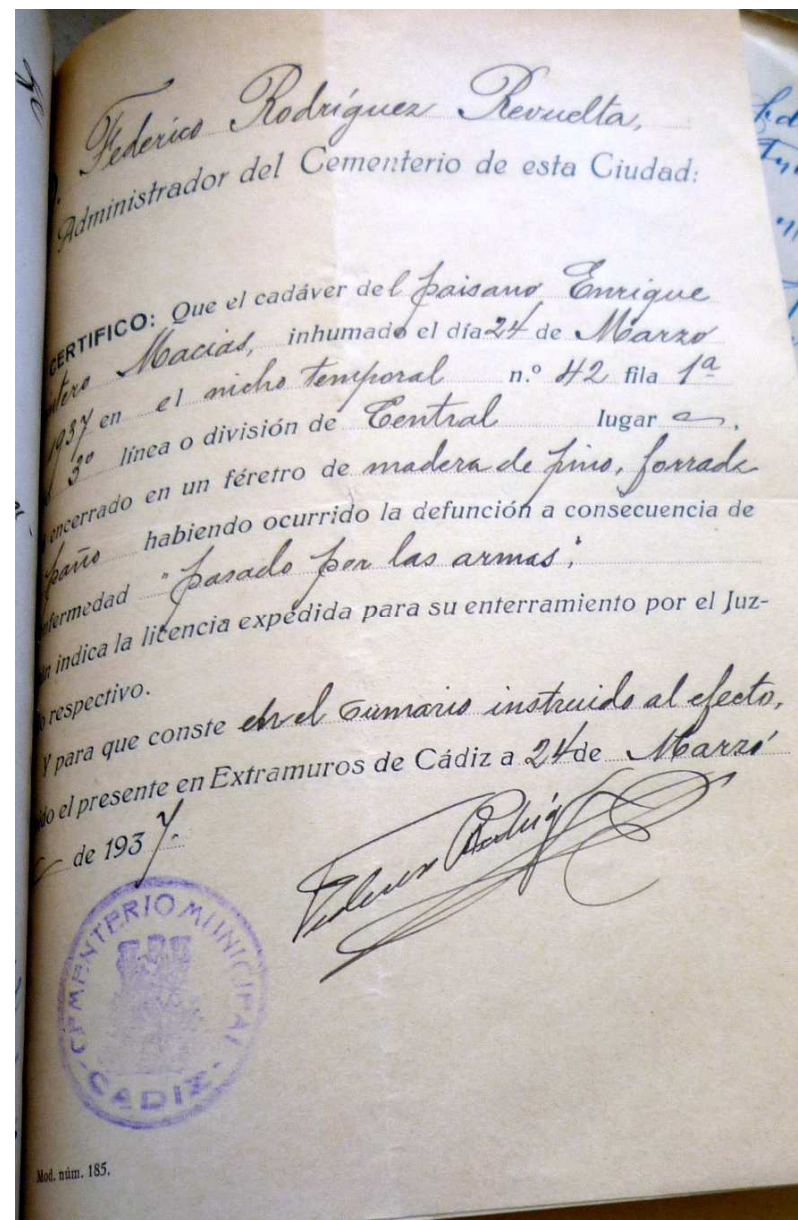 Federico Rodríguez Revuelta,
Administrador del Cementerio de esta Ciudad:
CERTIFICO: Que el cadáver del paisano Enrique
Macias, inhumado el día 24 de Marzo
1937 en el nicho temporal n.º 42 fila 1ª
3º línea o división de Central lugar
encerrado en un féretro de madera de pino, forrado
paño habiendo ocurrido la defunción a consecuencia de
enfermedad "pasado por las armas",
indica la licencia expedida para su enterramiento por el Juz-
respectivo.
Y para que conste en el sumario instruido al efecto,
el presente en Extramuros de Cádiz a 24 de Marzo
de 1937.
Federico Rodríg
CEMENTERIO MUNICIPAL
CADIZ
Mod. núm. 185.